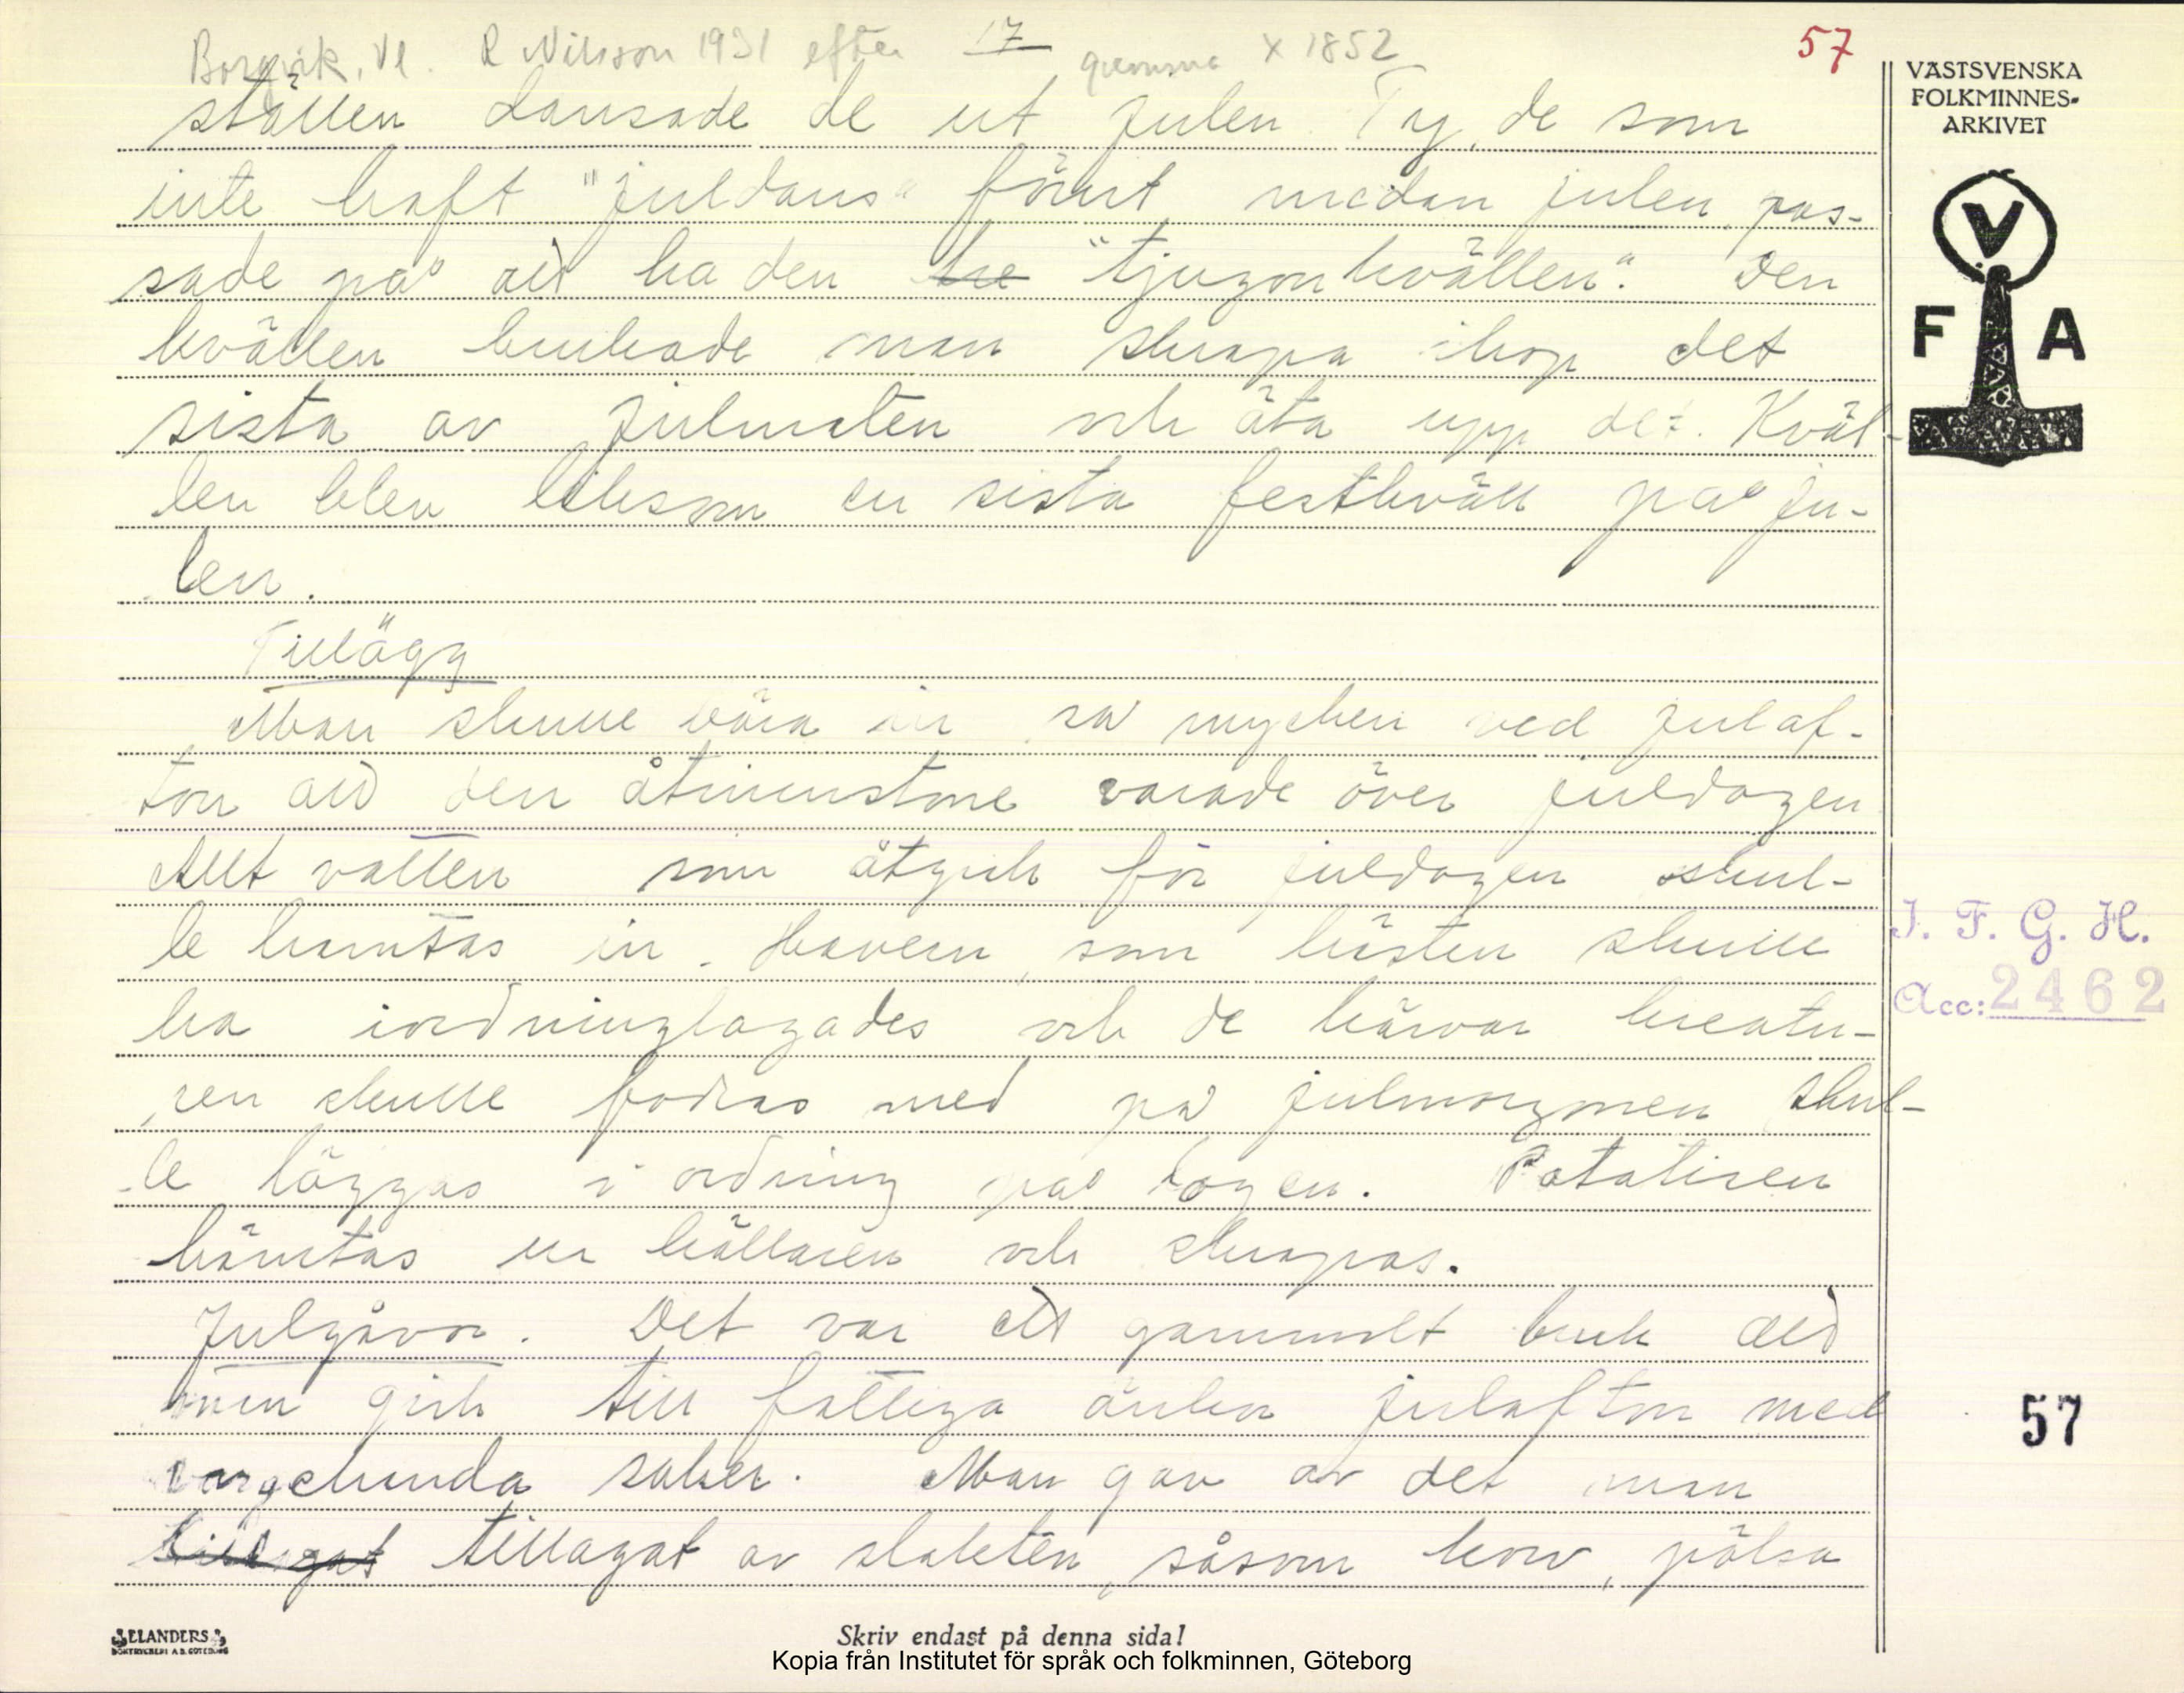 Borgvik, Vl. R Nilsson 1931 efter 17 qvinna x 1852
57
ställen dansade de ut julen. Ty, de som
inte haft "juldans" förut medan julen, pas-
sade på att ha den "tjugonkvällen". Den
kvällen brukade man skrapa ihop det
sista av julmaten och äta upp det. Kväl-
len blev liksom en sista festkväll på ju-
len.
Tillägg
Man skulle bära in så mycken ved julaf-
ton att den åtminstone varade över juldagen
Allt vatten som åtgick för juldagen skul-
le hämtas in. Havern, som hästen skulle
ha iordninglagades och de kärvar kreatu-
ren skulle fodras med på julmorgonen skul-
le läggas i ordning på logen. Potatisen
hämtas ur källaren och skrapas.
Julgåvor. Det var ett gammalt bruk att
man gick till fattiga änkor julafton med
varjehanda saker. Man gav av det man
tillagat av slakten, såsom korv, pölsa
VÄSTSVENSKA
FOLKMINNES-
ARKIVET
V
F A
I. F. G. H.
Acc: 2462
57
ELANDERS
BOKTRYCKERI A.B. GÖTEBORG
Skriv endast på denna sida!
Kopia från Institutet för språk och folkminnen, Göteborg